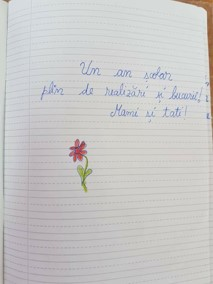 Un an școlar
plin de realizări și bucurii!
Mami și tati!